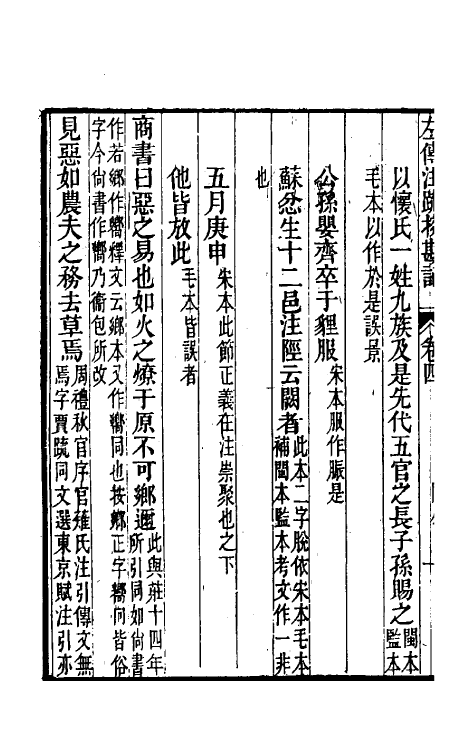 左傳注疏校勘記 卷四
以懷氏一姓九族及是先代五官之長子孫賜之閩本監本
毛本以作於是誤景
公孫嬰齊卒于貍服宋本服作脤是
蘇忿生十二邑注陘云闕者此本二字脫依宋本毛本補閩本監本考文作一非
也
五月庚申宋本此節正義在注崇聚也之下
他皆放此毛本皆誤者
商書曰惡之易也如火之燎于原不可鄉邇此與莊十四年所引同如尚書
作若鄉作嚮釋文云鄉本又作嚮同也按鄉正字嚮向皆俗
字今尚書作嚮乃衛包所改
見惡如農夫之務去草焉周禮秋官序官薙氏注引傳文無焉字賈疏同文選東京賦注引亦